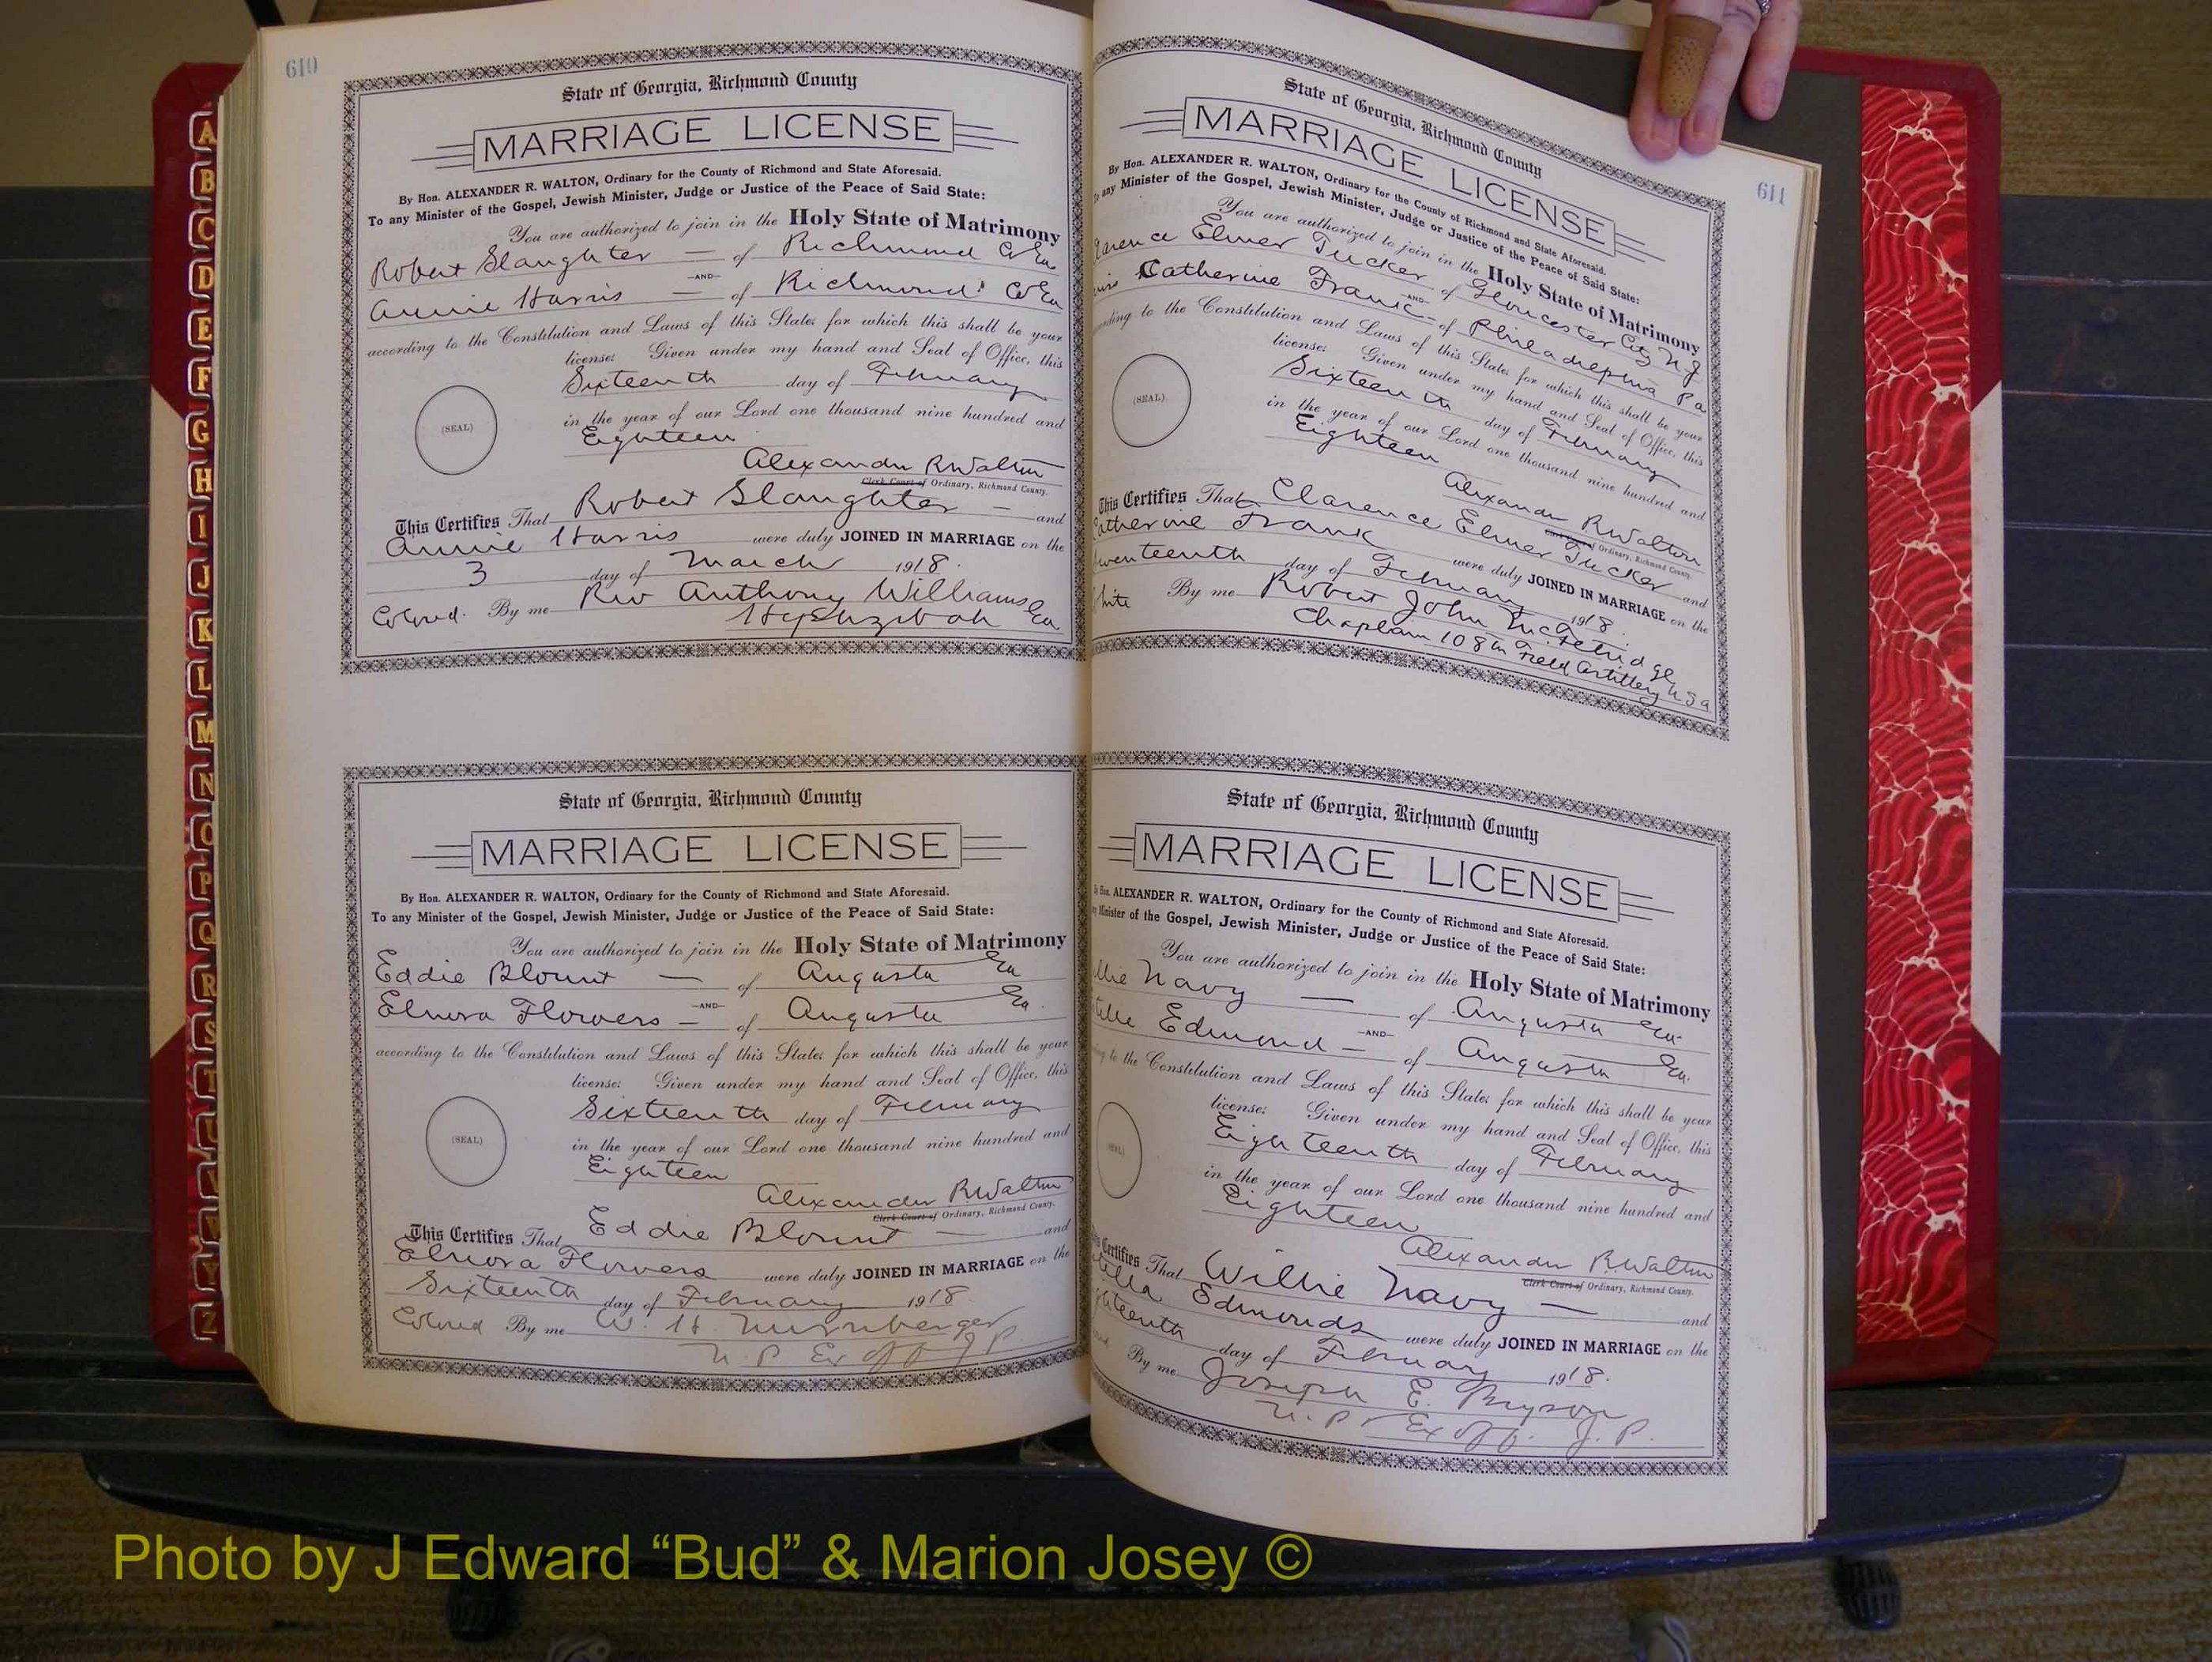 610
State of Georgia, Richmond County
MARRIAGE LICENSE
By Hon. ALEXANDER R. WALTON, Ordinary for the County of Richmond and State Aforesaid.
To any Minister of the Gospel, Jewish Minister, Judge or Justice of the Peace of Said State:
You are authorized to join in the Holy State of Matrimony
Robert Slaughter — of Richmond Co Ga
—AND—
Annie Harris — of Richmond Co Ga
according to the Constitution and Laws of this State; for which this shall be your
license: Given under my hand and Seal of Office, this
Sixteenth day of February
(SEAL)
in the year of our Lord one thousand nine hundred and
Eighteen
Alexander R Walton
Clerk Court of Ordinary, Richmond County.
This Certifies That Robert Slaughter — and
Annie Harris were duly JOINED IN MARRIAGE on the
3 day of March 1918.
Colored. By me Rev Anthony Williams
Hephzibah Ga.
State of Georgia, Richmond County
MARRIAGE LICENSE
By Hon. ALEXANDER R. WALTON, Ordinary for the County of Richmond and State Aforesaid.
To any Minister of the Gospel, Jewish Minister, Judge or Justice of the Peace of Said State:
You are authorized to join in the Holy State of Matrimony
Eddie Blount — of Augusta Ga
—AND—
Elnora Flowers — of Augusta Ga.
according to the Constitution and Laws of this State; for which this shall be your
license: Given under my hand and Seal of Office, this
Sixteenth day of February
(SEAL)
in the year of our Lord one thousand nine hundred and
Eighteen
Alexander R Walton
Clerk Court of Ordinary, Richmond County.
This Certifies That Eddie Blount — and
Elnora Flowers were duly JOINED IN MARRIAGE on the
Sixteenth day of February 1918
Colored By me W. H. Nurnberger
N P Ex Off J P
611
State of Georgia, Richmond County
MARRIAGE LICENSE
By Hon. ALEXANDER R. WALTON, Ordinary for the County of Richmond and State Aforesaid.
any Minister of the Gospel, Jewish Minister, Judge or Justice of the Peace of Said State:
You are authorized to join in the Holy State of Matrimony
larence Elmer Tucker of Gloucester City N.J
—AND—
Catherine Frank - of Philadelphia Pa
ording to the Constitution and Laws of this State; for which this shall be your
license: Given under my hand and Seal of Office, this
Sixteenth day of February
(SEAL)
in the year of our Lord one thousand nine hundred and
Eighteen
Alexander R Walton
Clerk Court of Ordinary, Richmond County.
This Certifies That Clarence Elmer Tucker and
Catherine Frank were duly JOINED IN MARRIAGE on the
wenteenth day of February 1918.
hite By me Robert John McFetridge
Chaplain 108th Field Artillery USA
State of Georgia, Richmond County
MARRIAGE LICENSE
By Hon. ALEXANDER R. WALTON, Ordinary for the County of Richmond and State Aforesaid.
Minister of the Gospel, Jewish Minister, Judge or Justice of the Peace of Said State:
You are authorized to join in the Holy State of Matrimony
llie Navy — of Augusta Ga
—AND—
Edmond — of Augusta Ga.
to the Constitution and Laws of this State; for which this shall be your
license: Given under my hand and Seal of Office, this
Eighteenth day of February
in the year of our Lord one thousand nine hundred and
Eighteen
Alexander R. Walton
Clerk Court of Ordinary, Richmond County.
Certifies That Willie Navy — and
Edmonds were duly JOINED IN MARRIAGE on the
ghteenth day of February 1918.
By me Joseph E. Bryson
N. P. Ex Off. J. P.
A
B
C
D
E
F
G
H
I
J
K
L
M
N
O
P
Q
R
S
T
U
V
W
Y
Z
Photo by J Edward “Bud” & Marion Josey ©